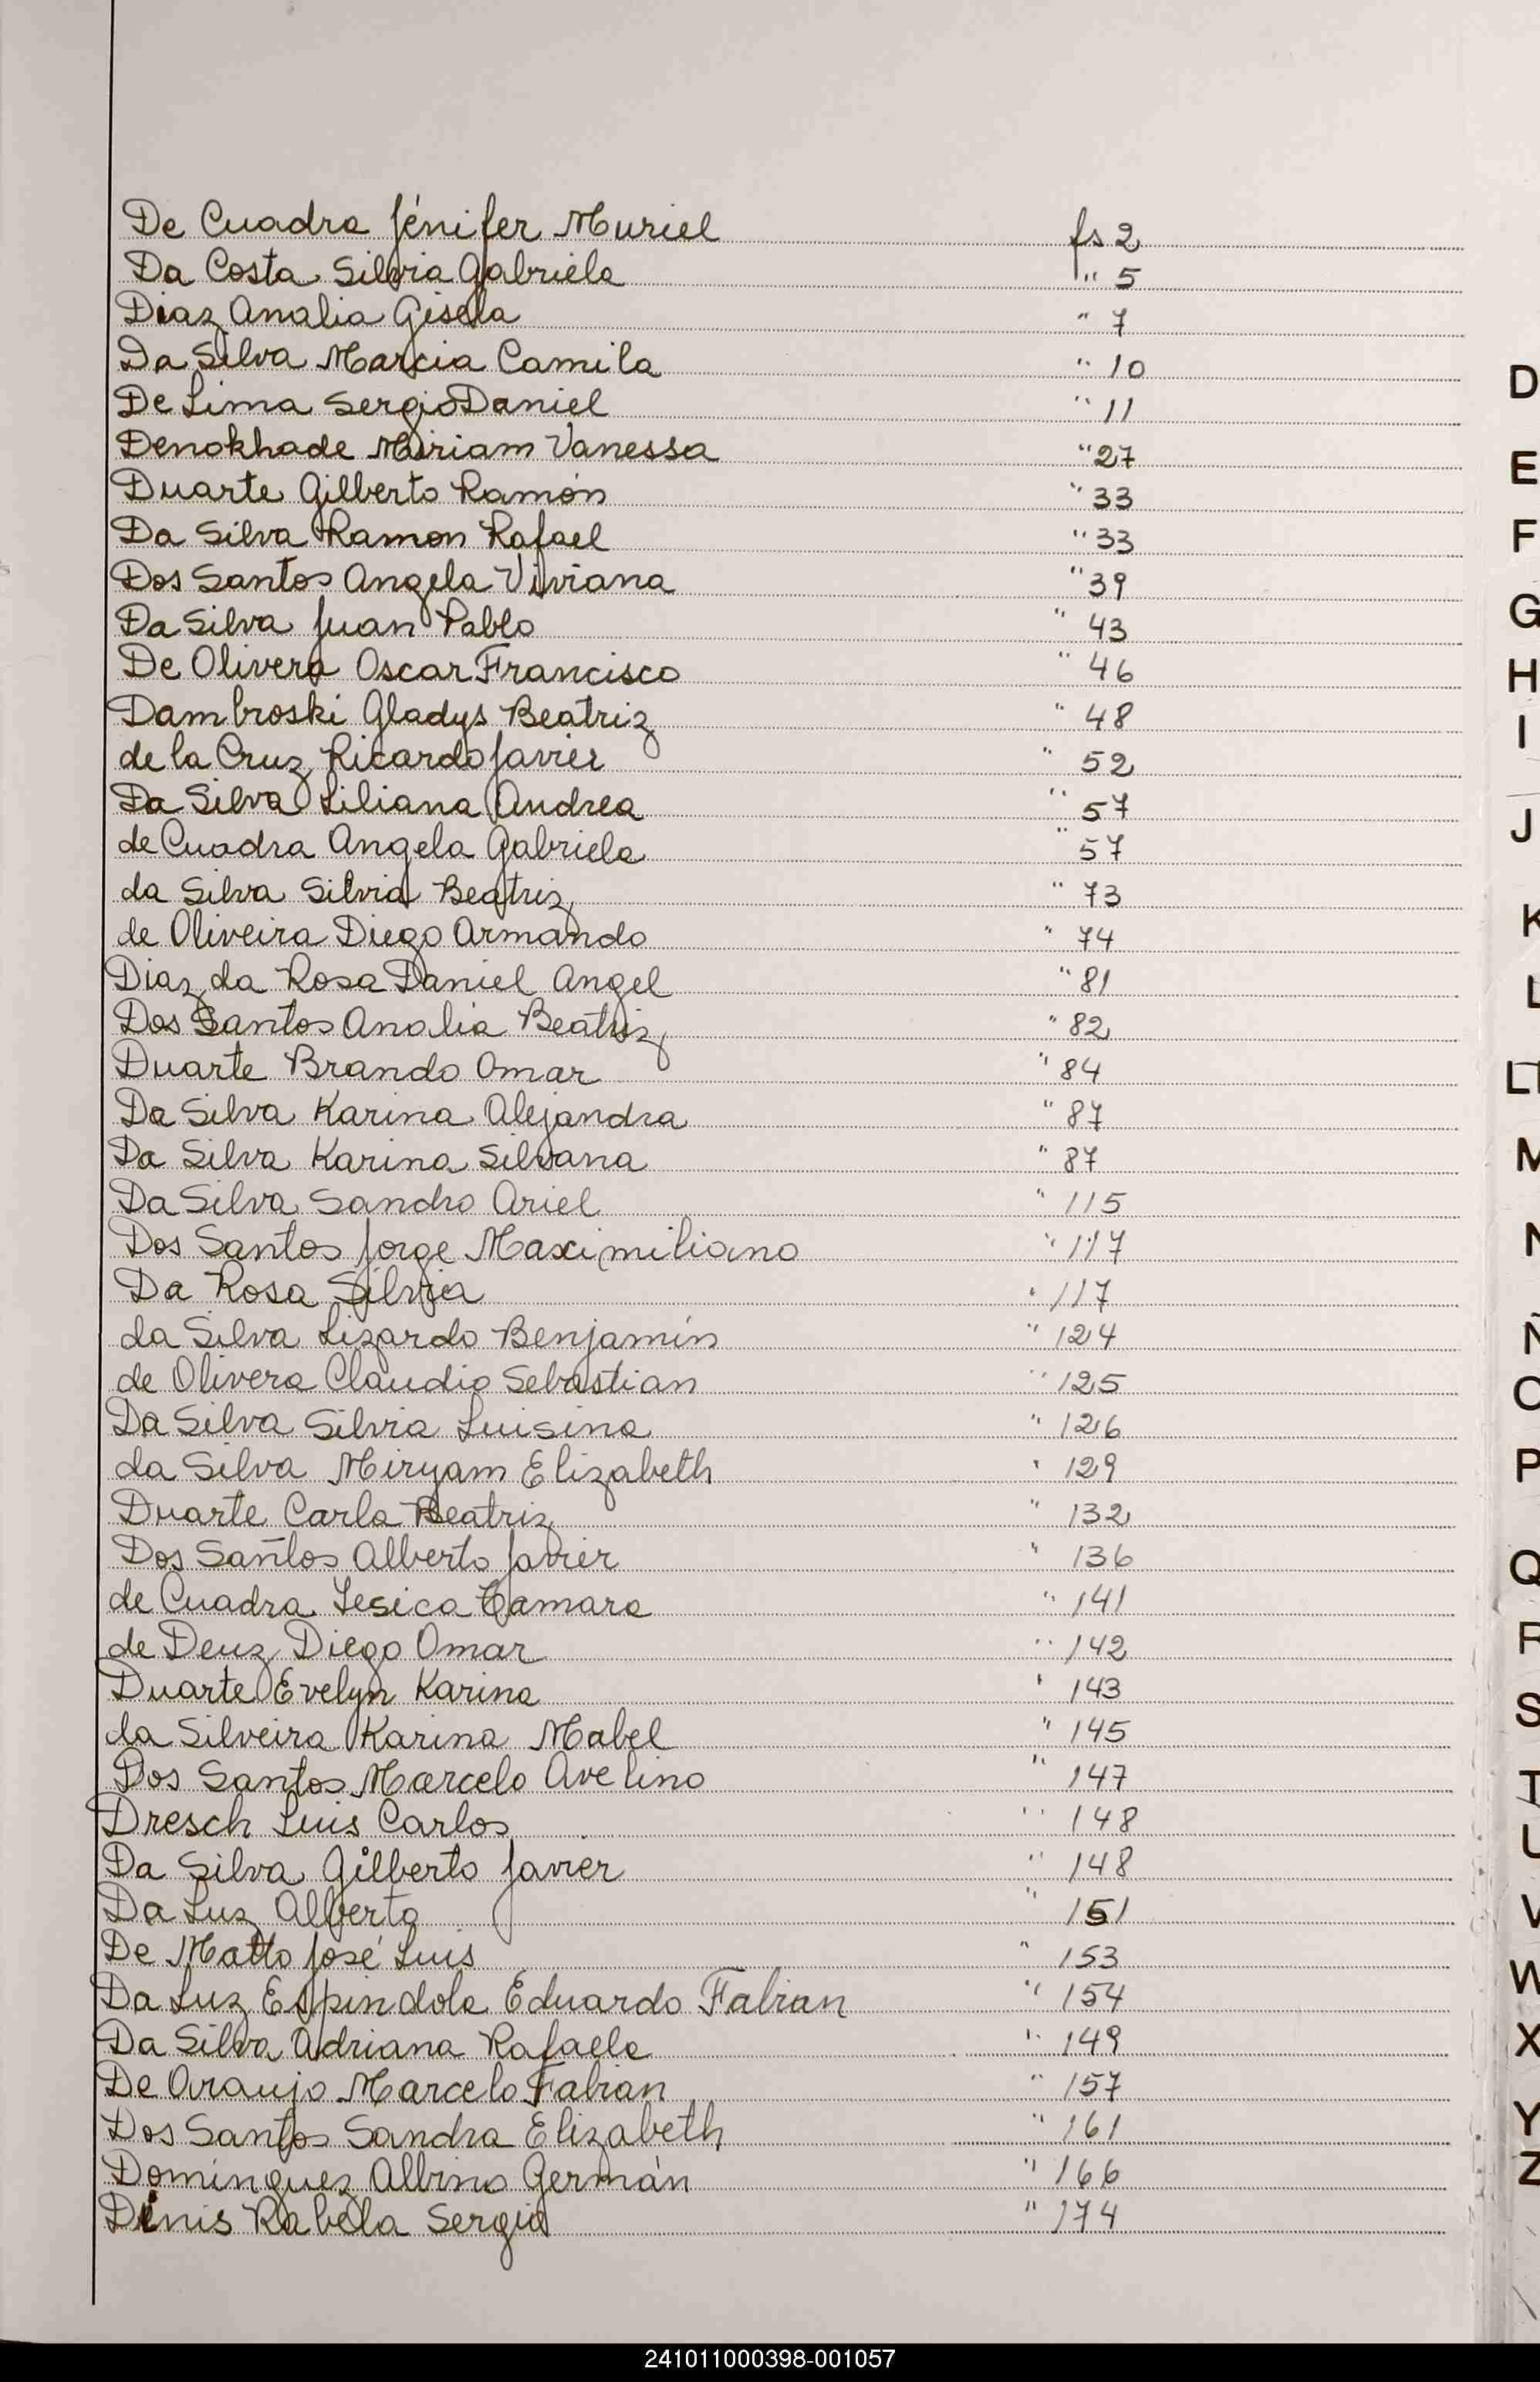 De Cuadra Jénifer Muriel fs 2
Da Costa Silvia Gabriela " 5
Diaz Analia Gisela " 7
Da Silva Marcia Camila " 10
De Lima Sergio Daniel " 11
Denokhade Miriam Vanessa " 27
Duarte Gilberto Ramón " 33
Da Silva Ramon Rafael " 33
Dos Santos Angela Viviana " 39
Da Silva Juan Pablo " 43
De Olivera Oscar Francisco " 46
Dambroski Gladys Beatriz " 48
de la Cruz Ricardo Javier " 52
Da Silva Liliana Andrea " 57
de Cuadra Angela Gabriela " 57
da Silva Silvia Beatriz " 73
de Oliveira Diego Armando " 74
Diaz da Rosa Daniel Angel " 81
Dos Santos Analia Beatriz " 82
Duarte Brando Omar " 84
Da Silva Karina Alejandra " 87
Da Silva Karina Silvana " 87
Da Silva Sandro Ariel " 115
Dos Santos Jorge Maximiliano " 117
Da Rosa Silvia " 117
da Silva Lizardo Benjamín " 124
de Olivera Claudio Sebastian " 125
Da Silva Silvia Luisina " 126
da Silva Miryam Elizabeth " 129
Duarte Carla Beatriz " 132
Dos Santos Alberto Javier " 136
de Cuadra Yesica Tamara " 141
de Deuz Diego Omar " 142
Duarte Evelyn Karina " 143
da Silveira Karina Mabel " 145
Dos Santos Marcelo Avelino " 147
Dresch Luis Carlos " 148
Da Silva Gilberto Javier " 148
Da Luz Alberto " 151
De Matto José Luis " 153
Da Luz Espindola Eduardo Fabian " 154
Da Silva Adriana Rafaela " 149
De Araujo Marcelo Fabian " 157
Dos Santos Sandra Elizabeth " 161
Domínguez Albino Germán " 166
Dinis Rabela Sergio " 174
D
E
F
G
H
I
J
K
L
LL
M
N
Ñ
O
P
Q
R
S
T
U
V
W
X
Y
Z
241011000398-001057